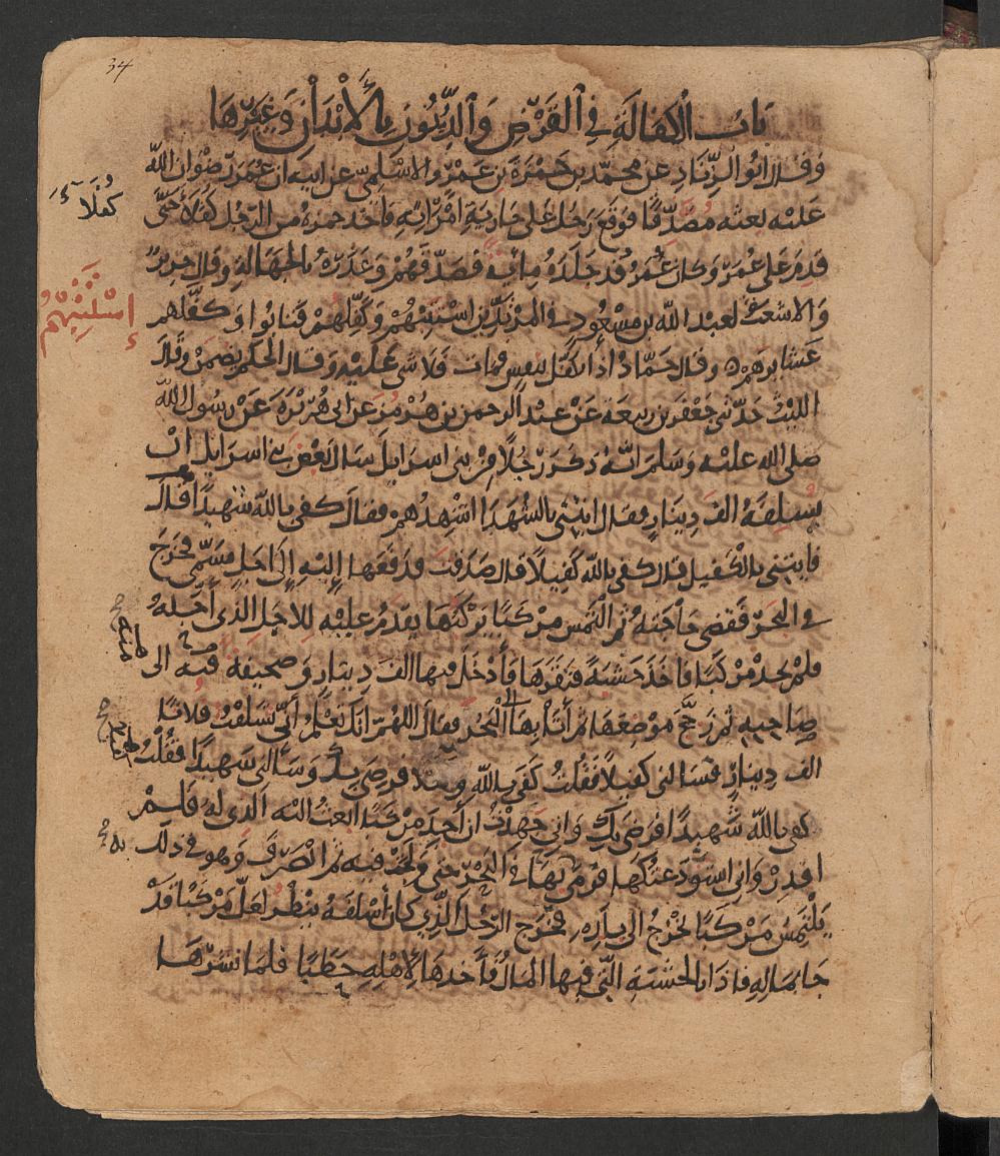 34
باب الكفالة في القرض والديون بالأبدان وغيرها
وقال ابو الزناد عن محمد بن حمزة بن عمرو الاسلمي عن ابيه ان عمر رضوان الله
عليه بعثه مصدقا فوقع رجل على جارية امرأته فاخذ حمزة من الرجل كفلاء حتى
كفلاء
قدم على عمر وكان عمر قد جلده مائة فصدقهم وعذره بالجهالة وقال جرير
والاشعث لعبد الله بن مسعود في المرتدين استتبهم وكفلهم فتابوا وكفلهم
إستتبهم
عشايرهم وقال حماد اذا تكفل بنفس فمات فلا شي عليه وقال الحكم يضمن وقال
الليث حدثني جعفر بن ربيعة عن عبد الرحمن بن هرمز عن ابي هريرة عن رسول الله
صلى الله عليه وسلم انه ذكر رجلا من بني اسرايل سال بعض بني اسرايل ان
يسلفه الف دينار فقال ايتني بالشهدا اشهدهم فقال كفى بالله شهيدا قال
فايتني بالكفيل قال كفى بالله كفيلا قال صدقت فدفعها إليه إلى اجل مسمى فخرج
في البحر فقضى حاجته ثم التمس مركبا يركبها يقدم عليه للاجل الذي أجله
فلم يجد مركبا فاخذ خشبة فنقرها فأدخل فيها الف دينار وصحيفة منه الى
صاحبه ثم زجج موضعها ثم أتا بها الى البحر فقال اللهم انك تعلم أني تسلفت فلانا
الف دينار فسالني كفيلا فقلت كفى بالله كفيلا فرضي بك وسألني شهيدا فقلت
كفى بالله شهيدا فرضي بك واني جهدت ان أجد مركبا ابعث اليه الذي له فلم
اقدر واني استودعتكها فرمى بها في البحر حتى ولجت فيه ثم انصرف وهو في ذلك
به
يلتمس مركبا يخرج الى بلده فخرج الرجل الذي كان أسلفه ينظر لعل مركبا قد
جا بماله فاذا بالخشبة التي فيها المال فأخذها لأهله حطبا فلما نشرها